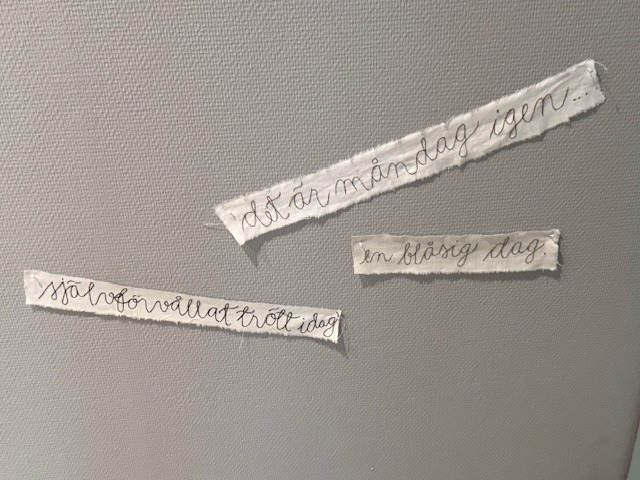 det är måndag igen...
en blåsig dag.
självförvållat trött idag